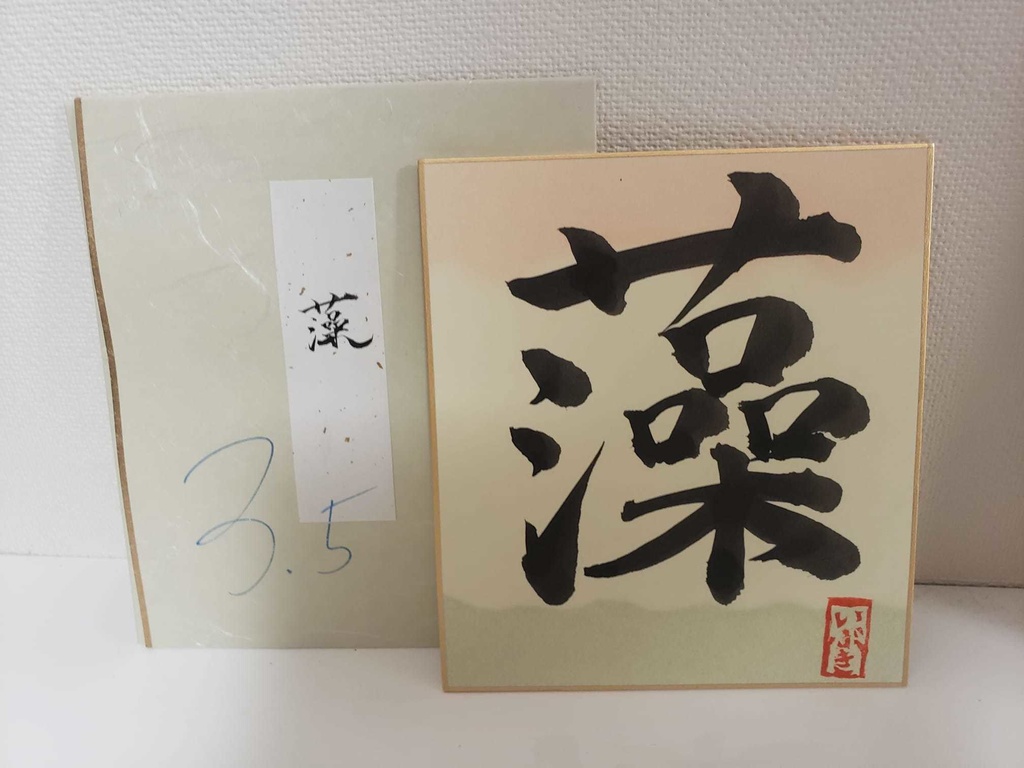 藻
3.5
藻
いぶき